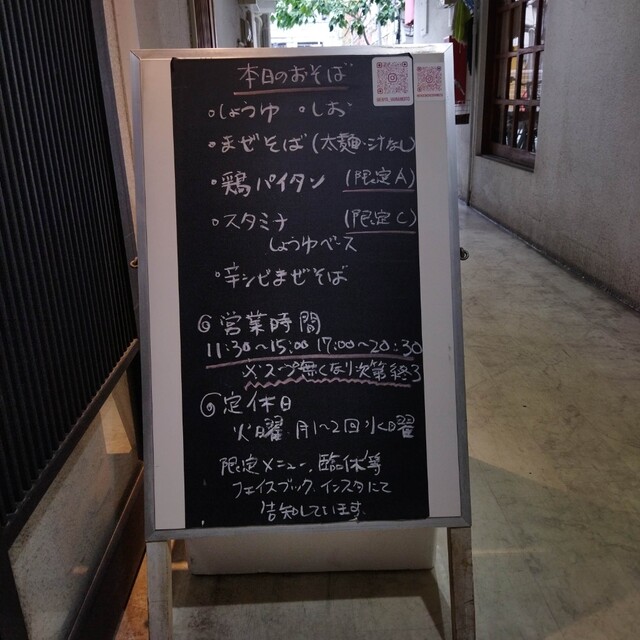 本日のおそば
・しょうゆ ・しお
・まぜそば(太麺・汁なし)
・鶏パイタン (限定A)
・スタミナ (限定C)
しょうゆベース
・辛シビまぜそば
◎営業時間
11:30〜15:00 17:00〜20:30
※スープ無くなり次第終了
◎定休日
火曜 月1〜2回水曜
限定メニュー、臨休等
フェイスブック、インスタにて
告知しています